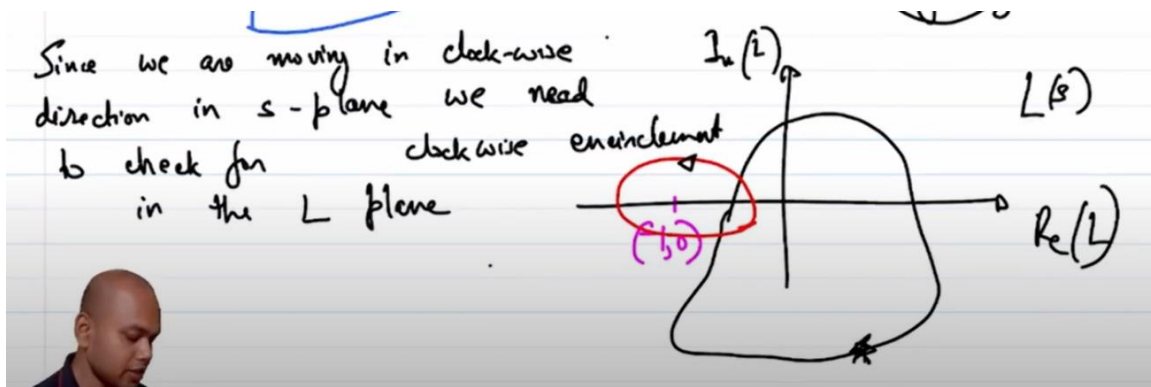 Since we are moving in clock-wise
direction in s-plane we need
to check for clockwise encirclement
in the L plane
Im(L)
L(s)
(-1,0)
Re(L)